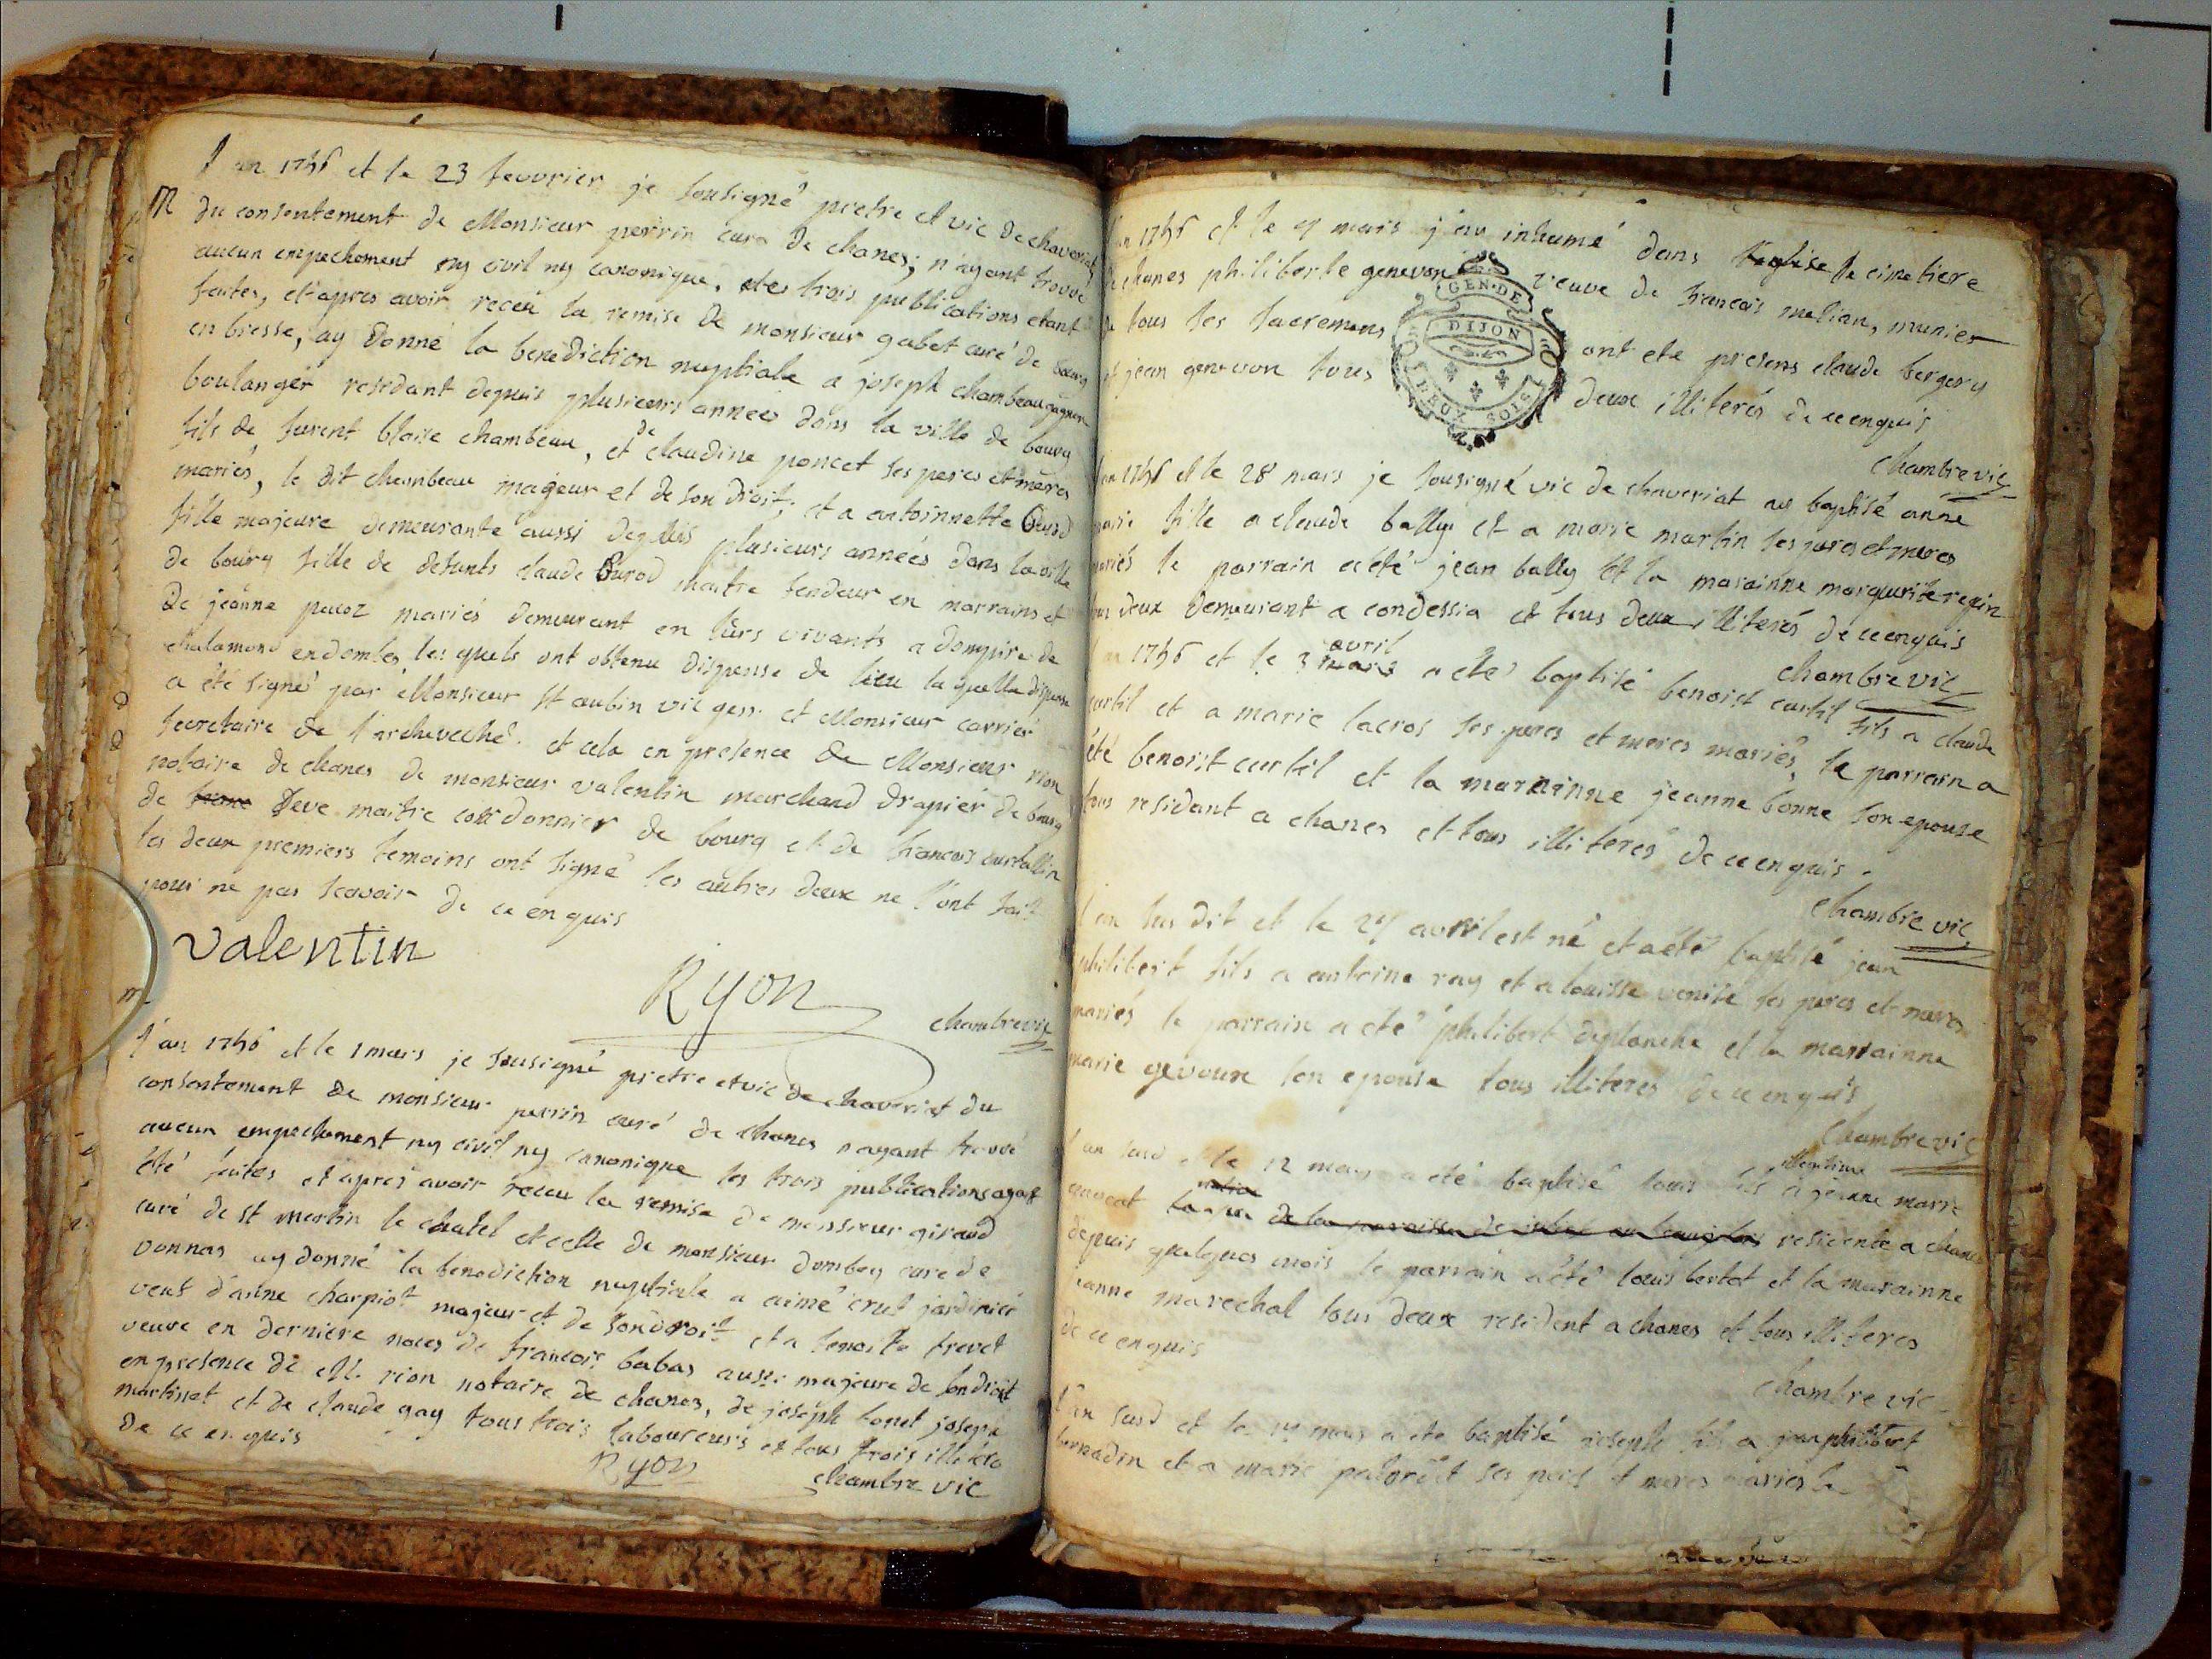 l'an 1756 et le 23 fevvrier je sousigné pretre et vic de chaveriat
M
du consentement de Monsieur perrin curé de chanes; n'ayant trouvé
aucun empechement ny civil ny canonique, les trois publications etant
faites, et apres avoir receu la remise de monsieur gabet curé de bourg
en bresse, ay donné la benediction nuptiale a joseph chambeau
boulanger residant depuis plusieurs années dans la ville de bourg
fils de furent blaise chambeau, et de claudine poncet ses peres et meres
mariés, le dit chambeau majeur et de son droit; et a antoinnette
fille majeure demeurante aussi depuis plusieurs années dans la ville
de bourg fille de defunts claude maitre fendeur en marrains et
de jeanne mariés demeurant en leurs vivants a dompire de
chalamond en dombes, les quels ont obtenu dispense de lieu la quelle dispense
a été signé par Monsieur st aubin vic gen. et Monsieur carrier
secretaire de l'archeveché. et cela en presence de Monsieur rion
notaire de chanes de monsieur valentin marchand drapier de bourg
de deve maitre cordonnier de bourg et de francois curtallin
les deux premiers temoins ont signé les autres deux ne l'ont fait
pour ne pas scavoir de ce enquis
valentin
Ryon
chambre vic
m
l'an 1756 et le 1 mars je sousigné pretre et vic de chaveriat du
consentement de monsieur perrin curé de chanes n'ayant trouvé
aucun empechement ny civil ny canonique les trois publications ayant
été faites et apres avoir receu la remise de monssieur giraud
curé de st martin le chatel et celle de monsieur dombey curé de
vonnas ay donné la benediction nuptiale a aimé crut jardinier
veuf d'anne charpiot majeur et de son droit et a benoite trevet
veuve en derniere noces de francois babas aussi majeure de son droit
en presence de M. rion notaire de chanes, de joseph tonet joseph
martinet et de claude gay tous trois laboureurs et tous trois
de ce enquis
Ryon
chambre vic
l'an 1756 et le 9 mars j'ay inhumé dans l'eglise le cimetiere
de chanes philiberte genevon veuve de francois malian, munier
de tous ses sacremens ont ete presens claude bergery
et jean genevon tous deux illiterés de ce enquis
GEN·DE
DIJON
DEUX SOLS
chambre vic
l'an 1756 et le 28 mars je sousigné vic de chaveriat ay baptisé anne
marie fille a claude bally et a marie martin ses peres et meres
mariés le parrain a été jean bally et la marainne marguerite
tous deux demeurant a condessia et tous deux illiterés de ce enquis
chambre vic
avril
l'an 1756 et le 3 mars a été baptisé benoist curtil fils a claude
curtil et a marie lacros ses peres et meres mariés, le parrain a
été benoist curtil et la marainne jeanne bonne son epouse
tous residant a chanes et tous illiterés de ce enquis.
chambre vic
l'an sus dit et le 24 avril est né et a été baptisé jean
philibert fils a antoine ray et a louisse venise ses peres et meres
mariés le parrain a été philibert deplanche et la marrainne
marie gevoux son epouse tous illiteres de ce enquis
chambre vic
l'an susd et le 12 may a été baptisé louis fils a jeanne marie
residente a chanes
depuis quelques mois le parrain a été louis bertet et la marainne
jeanne marechal tous deux resident a chanes et tous illiteres
de ce enquis
chambre vic
l'an susd et le 14 may a été baptisé joseph fils a jean philibert
bernadin et a marie ses peres et meres mariés le